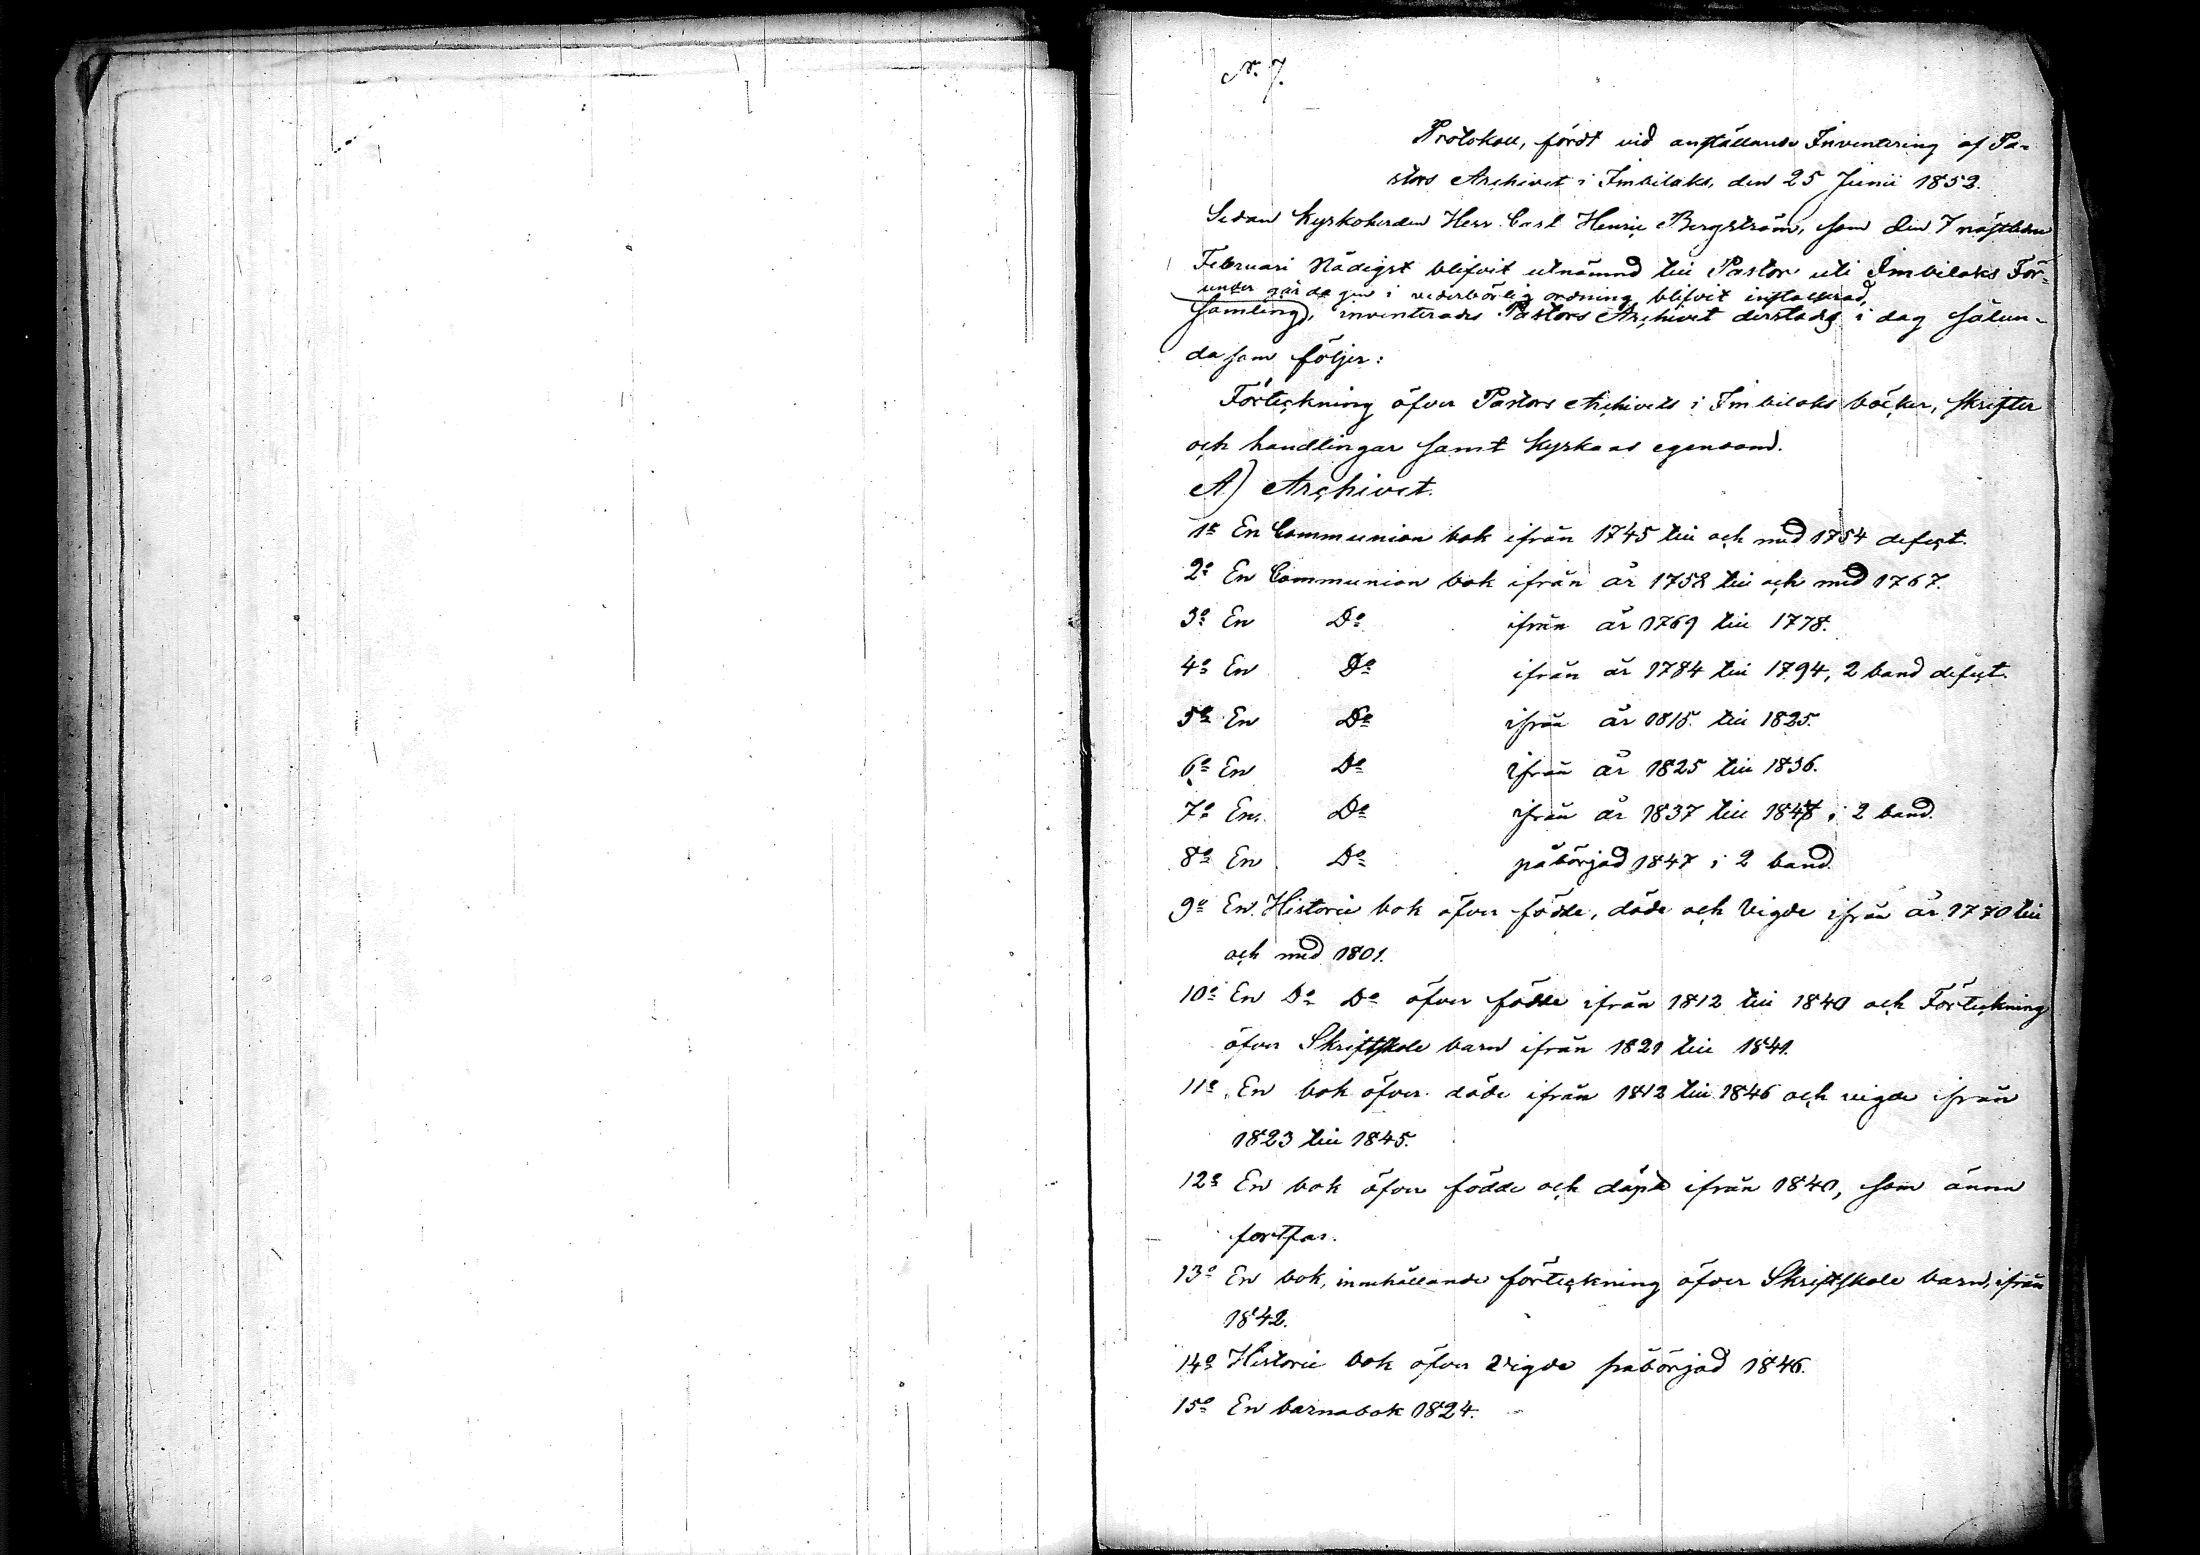 N:o 7.
Protokoll, fördt vid anställande Inventering af Pa-
stors Archivet i Imbilaks, den 25 Junii 1852.
Sedan Kyrkoherden Herr Carl Henric Bergström, som den 7 nästledne
Februari Nådigst blifvit utnämnd till Pastor uti Imbilaks För-
under gårdagen i vederbörlig ordning blifvit installerad,
samling, inventerades Pastors Archivet derstädes i dag sålun-
da som följer:
Förteckning öfver Pastors Archivets i Imbilaks böcker, skrifter
och handlingar samt Kyrkans egendom.
A) Archivet.
1o En Communion bok ifrån 1745 till och med 1754 defect.
2o En Communion bok ifrån år 1758 till och med 1767.
3o En Do ifrån år 1769 till 1778.
4o En Do ifrån år 1784 till 1794, 2 band defect.
5o En Do ifrån år 1815 till 1825.
6o En Do ifrån år 1825 till 1836.
7o En Do ifrån år 1837 till 1847 i 2 band.
8o En Do påbörjad 1847 i 2 band.
9o En Historie bok öfver födde, döde och Vigde ifrån år 1770 till
och med 1801.
10o En Do Do öfver födde ifrån 1812 till 1840 och Förteckning
öfver Skriftskole barn ifrån 1821 till 1841.
11o En bok öfver döde ifrån 1812 till 1846 och vigde ifrån
1823 till 1845.
12o En bok öfver födde och döpte ifrån 1840, som ännu
fortfar.
13o En bok, innehållande förteckning öfver Skriftskole barn, ifrån
1842.
14o Historie bok öfver Vigde påbörjad 1846.
15o En barnabok 1824.